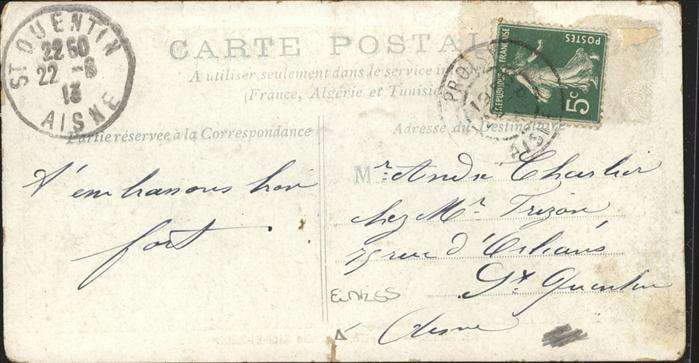 St QUENTIN
2250
22 -8
13
AISNE
CARTE POSTALE
A utiliser seulement dans le service in
(France, Algérie et Tunisie
Partie réservée à la Correspondance
Adresse du Destinataire
POSTES
REPUBLIQUE FRANÇAISE
5c
t'embrassons bien
fort
Mr André Charlier
chez Mr Trizon
rue d'Orléans
St Quentin
Aisne